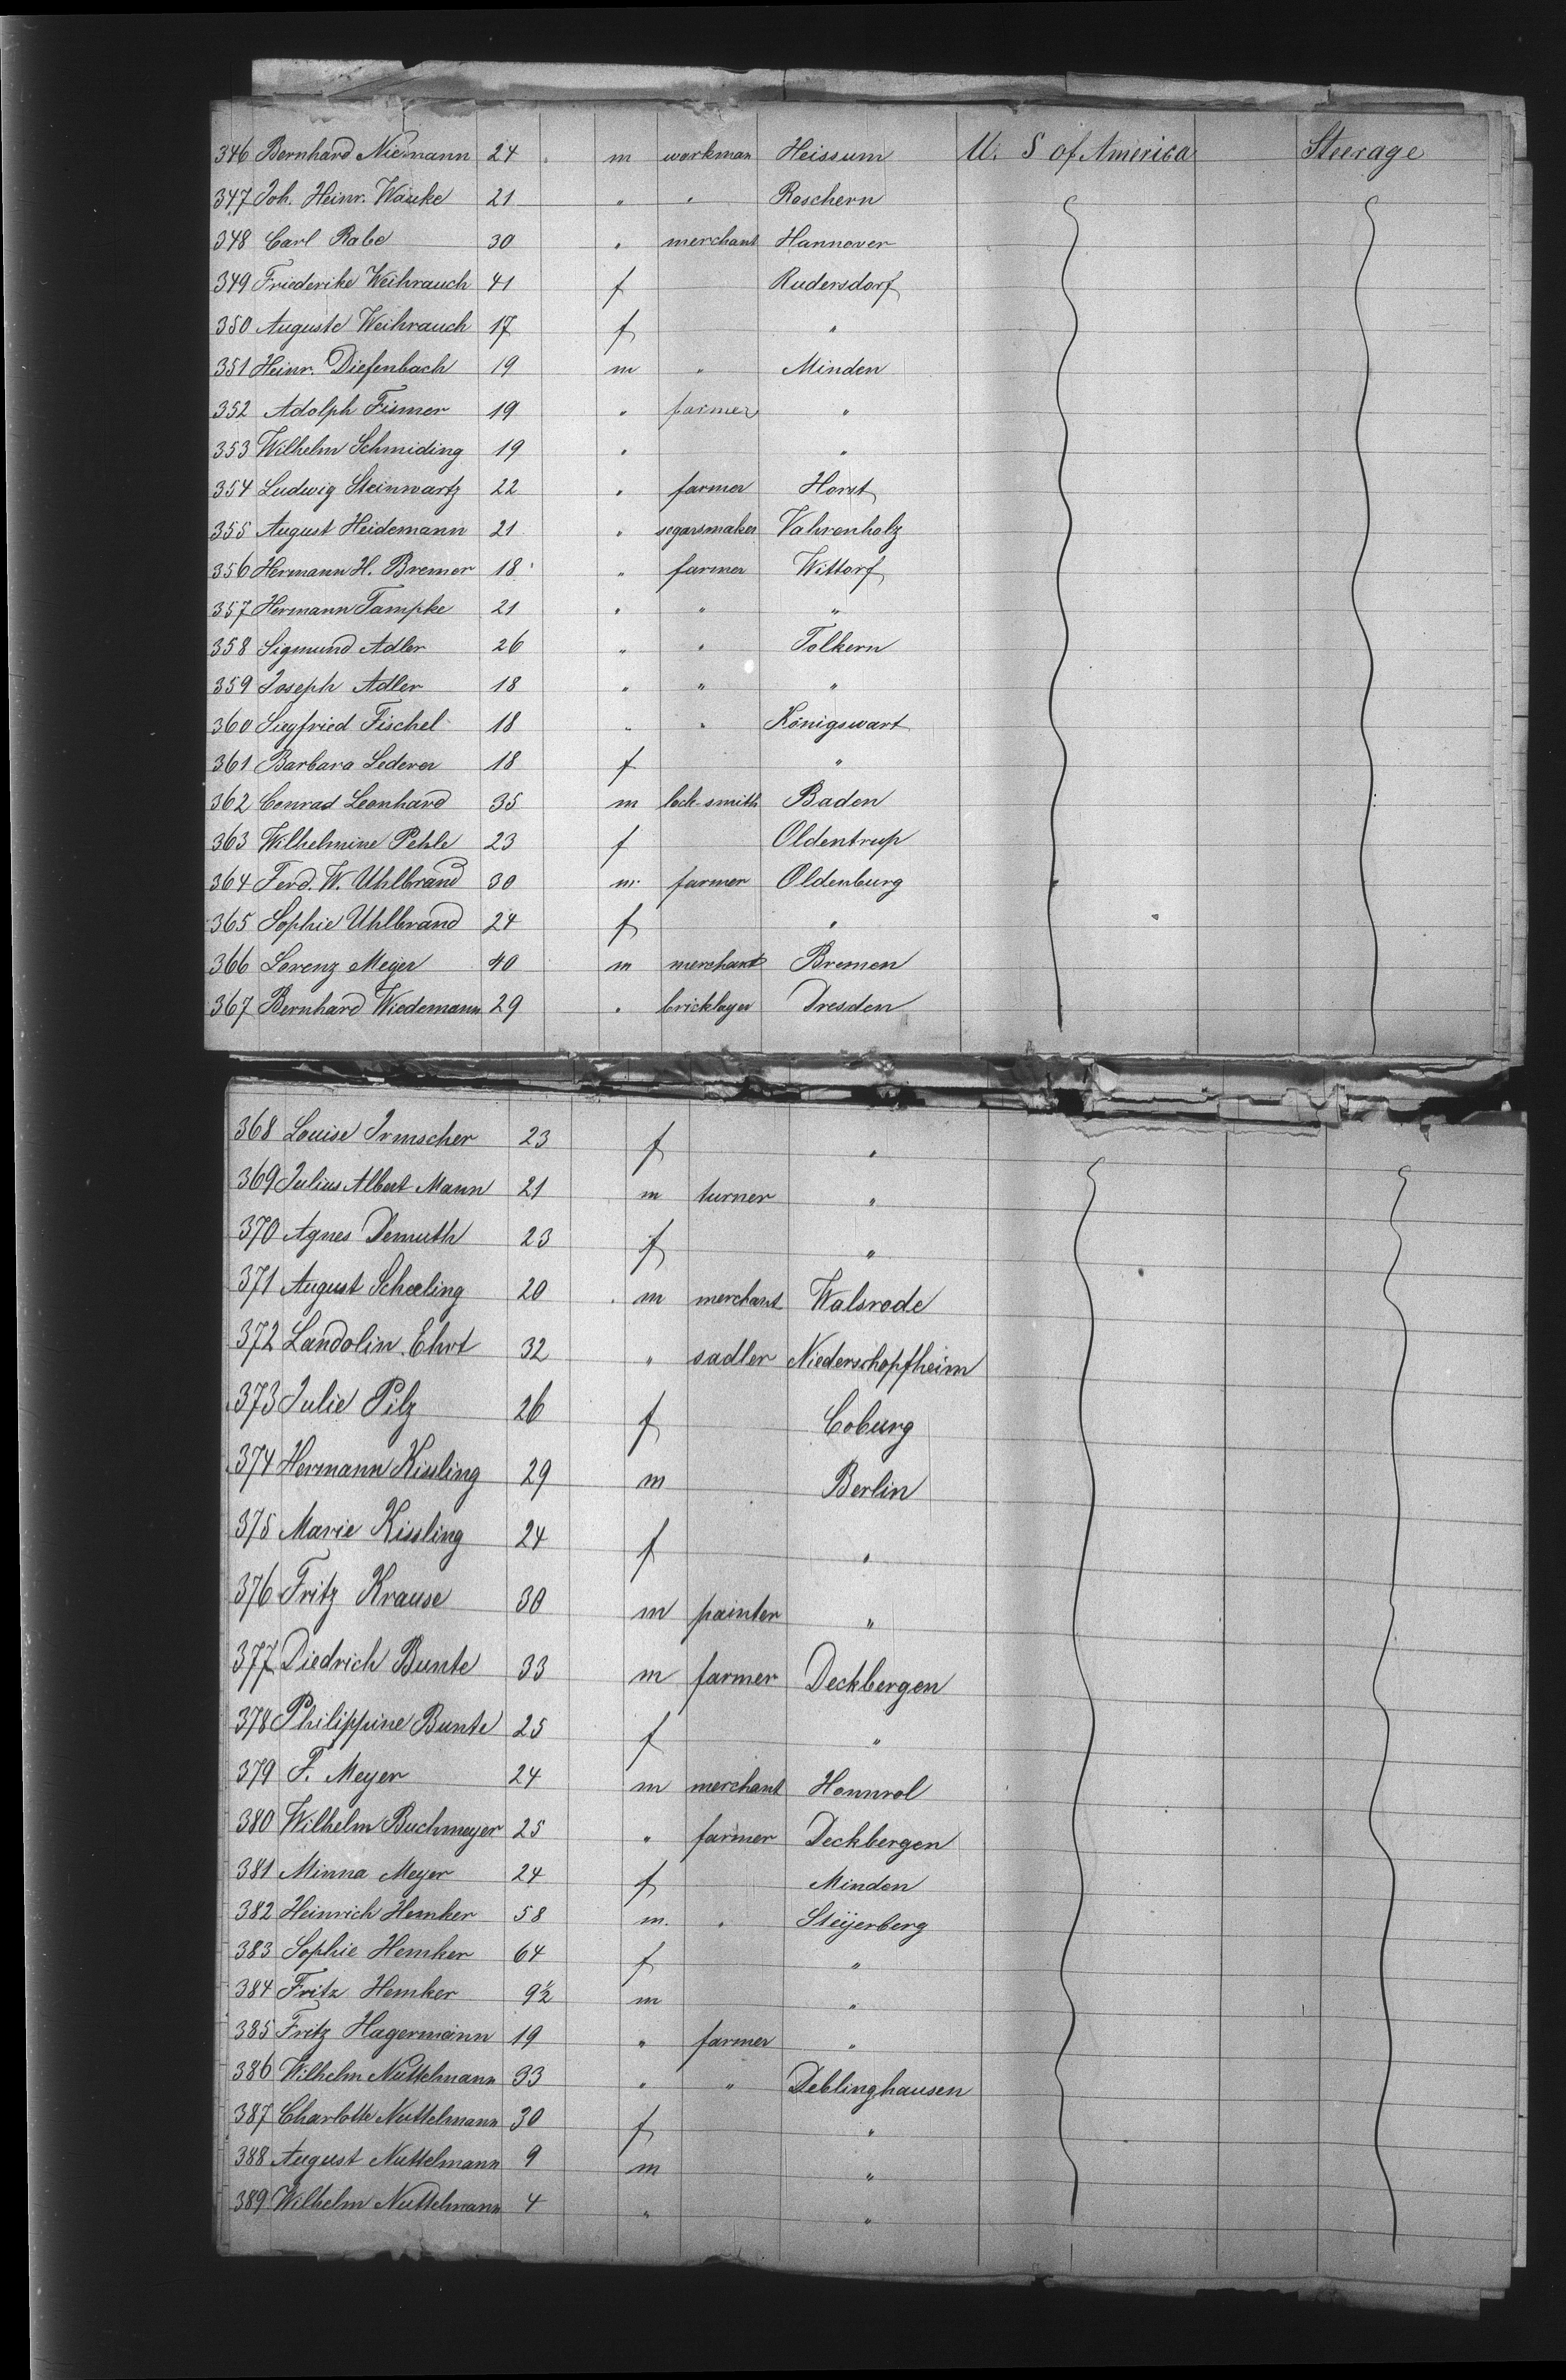 346 Bernhard Niemann 24 m workman Heissum U. S of America Steerage
347 Joh. Heinr. Wauke 21 " " Roschern
348 Carl Rabe 30 " merchant Hannover
349 Friederike Weihrauch 41 f Rudersdorf
350 Auguste Weihrauch 17 f "
351 Heinr. Diefenbach 19 m " Minden
352 Adolph Fismer 19 " farmer "
353 Wilhelm Schmiding 19 " "
354 Ludwig Steinwartz 22 " farmer Horst
355 August Heidemann 21 " segarsmaker Vahrenholz
356 Hermann H. Bremer 18 " farmer Wittorf
357 Hermann Tampke 21 " " "
358 Sigmund Adler 26 " " Tolkern
359 Joseph Adler 18 " " "
360 Siegfried Fischel 18 " " Königswart
361 Barbara Lederer 18 f "
362 Conrad Leonhard 35 m lock-smith Baden
363 Wilhelmine Pehle 23 f Oldentrup
364 Ferd. W. Uhlbrand 30 m farmer Oldenburg
365 Sophie Uhlbrand 24 f "
366 Lorenz Meyer 40 m merchant Bremen
367 Bernhard Wiedemann 29 " bricklayer Dresden
368 Louise Irmscher 23 f "
369 Julius Albert Mann 21 m turner "
370 Agnes Demuth 23 f "
371 August Scheeling 20 m merchant Walsrode
372 Landolin Ehrt 32 " sadler Niederschopfheim
373 Julie Pilz 26 f Coburg
374 Hermann Kissling 29 m Berlin
375 Marie Kissling 24 f "
376 Fritz Krause 30 m painter "
377 Diedrich Bunte 33 m farmer Deckbergen
378 Philippine Bunte 25 f "
379 F. Meyer 24 m merchant Honnrol
380 Wilhelm Buchmeyer 25 " farmer Deckbergen
381 Minna Meyer 24 f Minden
382 Heinrich Hemker 58 m. " Steÿerberg
383 Sophie Hemker 64 f "
384 Fritz Hemker 9½ m "
385 Fritz Hagermann 19 " farmer "
386 Wilhelm Nuttelmann 33 " " Deblinghausen
387 Charlotte Nuttelmann 30 f "
388 August Nuttelmann 9 m "
389 Wilhelm Nuttelmann 4 " "